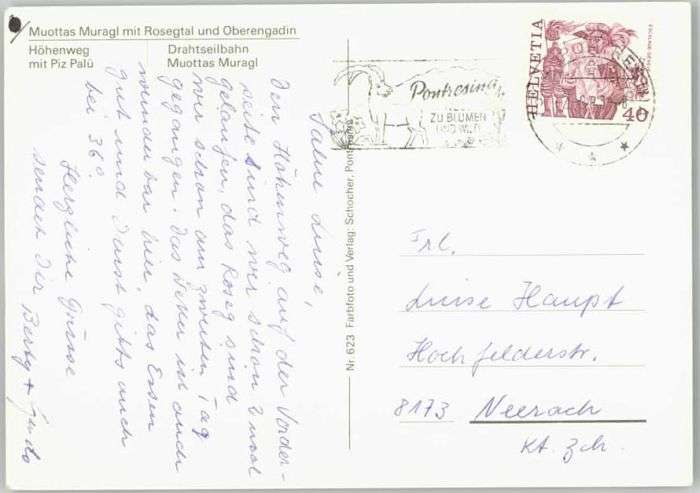 Muottas Muragl mit Rosegtal und Oberengadin
Höhenweg
mit Piz Palü
Drahtseilbahn
Muottas Muragl
Salue Luise,
den Höhenweg auf der Vorder-
seite sind wir schon 2 mal
gelaufen, das Roseg sind
wir schon am zweiten Tag
gegangen. Das Wetter ist auch
wunderbar hier, das Essen
gut und Durst gibts auch
bei 36°.
Herzliche Grüsse
sendet Dir Berty +
Nr. 623 Farbfoto und Verlag: Schocher, Pontresina
Pontresina
ZU BLUMEN
UND WILD
HELVETIA
40
Frl.
Luise Haupt
Hochfelderstr.
8173 Neerach
Kt. Zch.